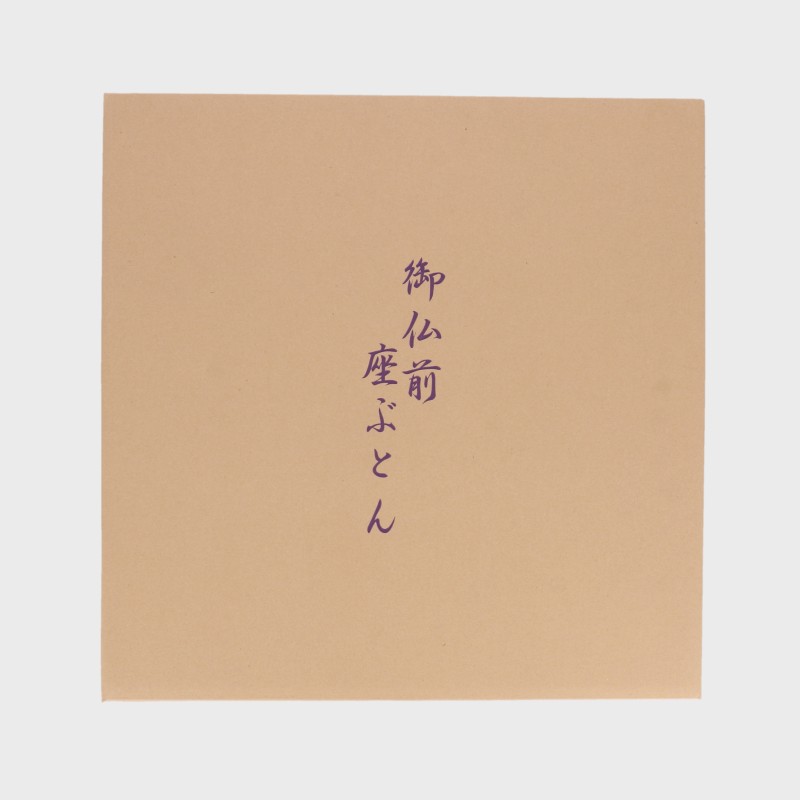 御仏前
座ぶとん